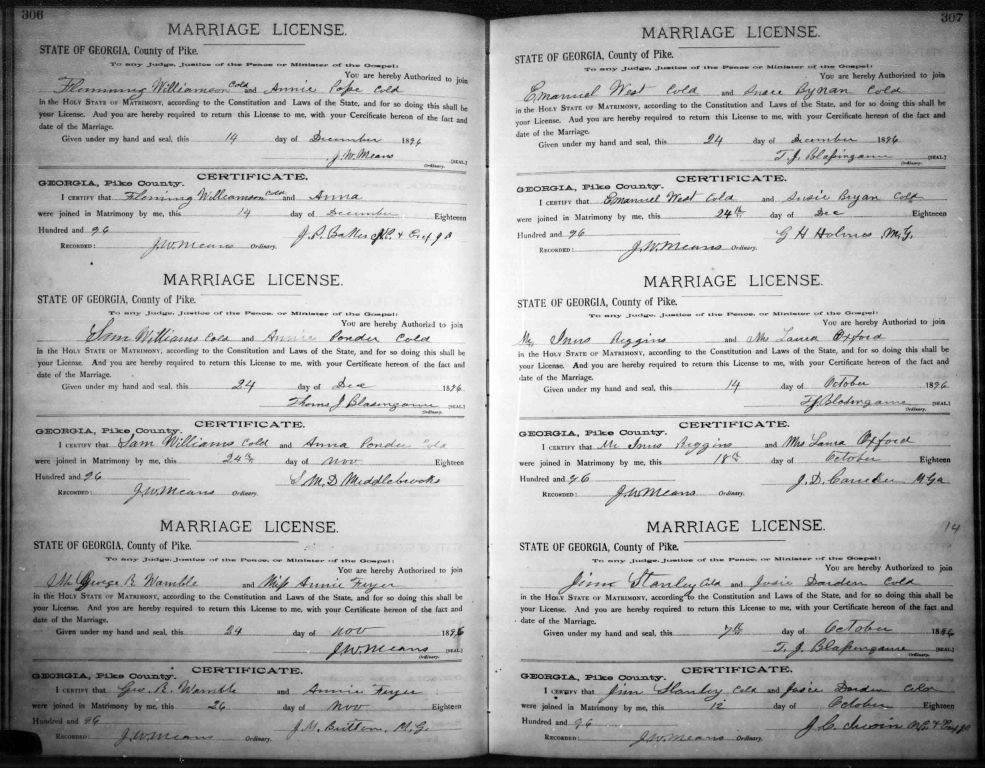 306
MARRIAGE LICENSE.
STATE OF GEORGIA, County of Pike.
To any Judge, Justice of the Peace or Minister of the Gospel:
You are hereby Authorized to join
Flemming Williamson Cold and Annie Pope Cold
in the HOLY STATE OF MATRIMONY, according to the Constitution and Laws of the State, and for so doing this shall be
your License. And you are hereby required to return this License to me, with your Certificate hereon of the fact and
date of the Marriage.
Given under my hand and seal, this 14 day of December 1896
J. W. Means [SEAL.]
Ordinary.
CERTIFICATE.
GEORGIA, Pike County.
I CERTIFY that Fleming Williamson Cold and Anna
were joined in Matrimony by me, this 14 day of December Eighteen
Hundred and 96 J. P. Baker
RECORDED: J. W. Means Ordinary.
MARRIAGE LICENSE.
STATE OF GEORGIA, County of Pike.
To any Judge, Justice of the Peace, or Minister of the Gospel:
You are hereby Authorized to join
Sam Williams Cold and Annie Ponder Cold
in the HOLY STATE OF MATRIMONY, according to the Constitution and Laws of the State, and for so doing this shall be
your License. And you are hereby required to return this License to me, with your Certificate hereon of the fact and
date of the Marriage.
Given under my hand and seal, this 24 day of Dec 1896
Thomas J. Blasingame [SEAL.]
Ordinary.
CERTIFICATE.
GEORGIA, Pike County.
I CERTIFY that Sam Williams Cold and Anna Ponder Cold
were joined in Matrimony by me, this 24th day of Nov Eighteen
Hundred and 96 S. M. D. Middlebrooks
RECORDED: J. W. Means Ordinary.
MARRIAGE LICENSE.
STATE OF GEORGIA, County of Pike.
To any Judge, Justice of the Peace, or Minister of the Gospel:
You are hereby Authorized to join
Mr George R. Wamble and Miss Annie Fryer
in the HOLY STATE OF MATRIMONY, according to the Constitution and Laws of the State, and for so doing this shall be
your License. And you are hereby required to return this License to me, with your Certificate hereon of the fact and
date of the Marriage.
Given under my hand and seal, this 24 day of Nov 1896
J. W. Means [SEAL.]
Ordinary.
CERTIFICATE.
GEORGIA, Pike County.
I CERTIFY that Geo. R. Wamble and Annie Fryer
were joined in Matrimony by me, this 26 day of Nov Eighteen
Hundred and 96 J. M. Britton, M. G.
RECORDED: J. W. Means Ordinary.
307
MARRIAGE LICENSE.
STATE OF GEORGIA, County of Pike.
To any Judge, Justice of the Peace or Minister of the Gospel:
You are hereby Authorized to join
Emanuel West Cold and Susie Bynan Cold
in the HOLY STATE OF MATRIMONY, according to the Constitution and Laws of the State, and for so doing this shall be
your License. And you are hereby required to return this License to me, with your Certificate hereon of the fact and
date of the Marriage.
Given under my hand and seal, this 24 day of December 1896
T. J. Blasingame [SEAL.]
Ordinary.
CERTIFICATE.
GEORGIA, Pike County.
I CERTIFY that Emanuel West Cold and Susie Bryan Cold
were joined in Matrimony by me, this 24th day of Dec Eighteen
Hundred and 96 G H Holmes M. G.
RECORDED: J. W. Means Ordinary.
MARRIAGE LICENSE.
STATE OF GEORGIA, County of Pike.
To any Judge, Justice of the Peace, or Minister of the Gospel:
You are hereby Authorized to join
Mr Riggins and Mrs Laura Oxford
in the HOLY STATE OF MATRIMONY, according to the Constitution and Laws of the State, and for so doing this shall be
your License. And you are hereby required to return this License to me, with your Certificate hereon of the fact and
date of the Marriage.
Given under my hand and seal, this 14 day of October 1896
T J Blasingame [SEAL.]
Ordinary.
CERTIFICATE.
GEORGIA, Pike County.
I CERTIFY that Mr Riggins and Mrs Laura Oxford
were joined in Matrimony by me, this 18th day of October Eighteen
Hundred and 96 J. D.
RECORDED: J. W. Means Ordinary.
14
MARRIAGE LICENSE.
STATE OF GEORGIA, County of Pike.
To any Judge, Justice of the Peace, or Minister of the Gospel:
You are hereby Authorized to join
Jim Stanley Cold and Josie Darden Cold
in the HOLY STATE OF MATRIMONY, according to the Constitution and Laws of the State, and for so doing this shall be
your License. And you are hereby required to return this License to me, with your Certificate hereon of the fact and
date of the Marriage.
Given under my hand and seal, this 7th day of October 1896
T. J. Blasingame [SEAL.]
Ordinary.
CERTIFICATE.
GEORGIA, Pike County.
I CERTIFY that Jim Stanley Cold and Josie Darden Cold
were joined in Matrimony by me, this 12 day of October Eighteen
Hundred and 96 J. C.
RECORDED: J. W. Means Ordinary.